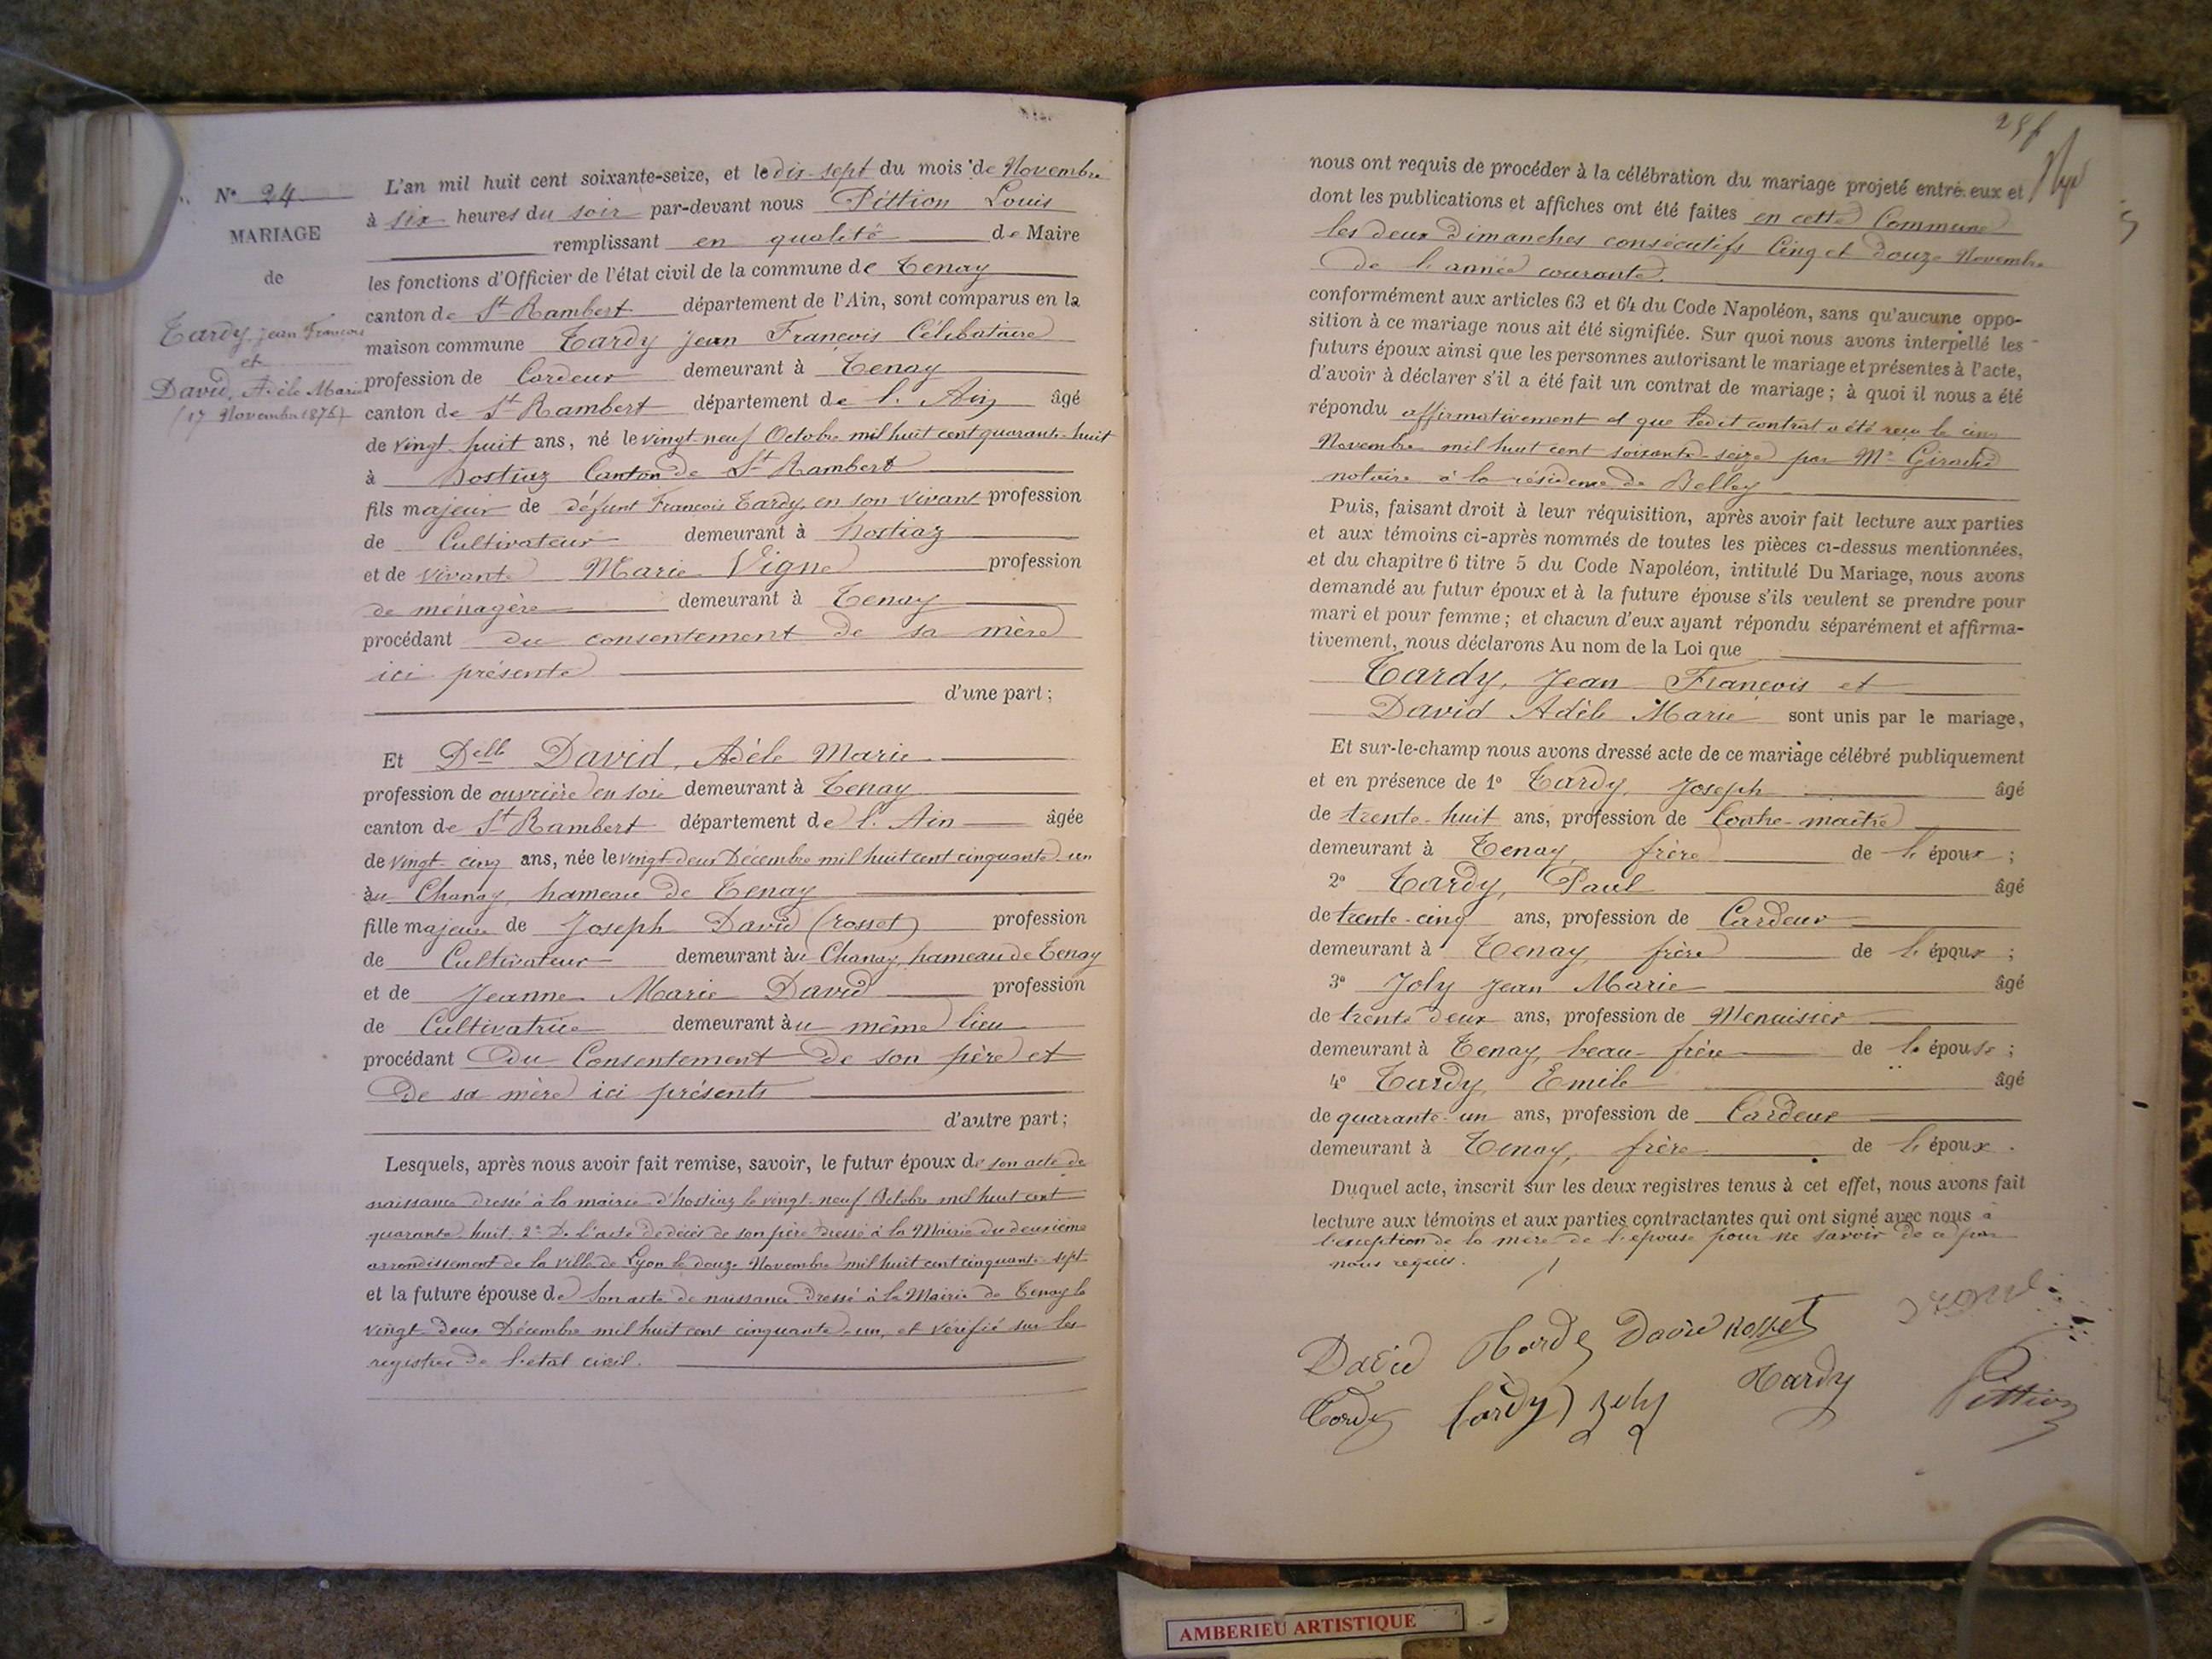 N° 24
MARIAGE
de
Tardy, Jean François
et
David, Adèle Marie
(17 Novembre 1876)
L'an mil huit cent soixante-seize, et le dix-sept du mois de Novembre
à six heures du soir par-devant nous Pittion Louis
remplissant en qualité de Maire
les fonctions d'Officier de l'état civil de la commune de Tenay
canton de St Rambert département de l'Ain, sont comparus en la
maison commune Tardy Jean François Célibataire
profession de Cardeur demeurant à Tenay
canton de St Rambert département de l'Ain âgé
de vingt-huit ans, né le vingt-neuf Octobre mil huit cent quarante-huit
à hostiaz Canton de St Rambert
fils majeur de défunt François Tardy, en son vivant profession
de Cultivateur demeurant à hostiaz
et de vivante Marie Vigne profession
de ménagère demeurant à Tenay
procédant du consentement de sa mère
ici présente
d'une part;
Et Delle David, Adèle Marie
profession de ouvrière en soie demeurant à Tenay
canton de St Rambert département de l'Ain âgée
de vingt-cinq ans, née le vingt-deux Décembre mil huit cent cinquante-un
àu Chanay, hameau de Tenay
fille majeure de Joseph David (rosset) profession
de Cultivateur demeurant àu Chanay, hameau de Tenay
et de Jeanne Marie David profession
de Cultivatrice demeurant àu même lieu
procédant du Consentement de son père et
De sa mère ici présents
d'autre part;
Lesquels, après nous avoir fait remise, savoir, le futur époux de son acte de
naissance dressé à la mairie d'hostiaz le vingt-neuf Octobre mil huit cent
quarante-huit. 2° De l'acte de décès de son père dressé à la Mairie du deuxième
arrondissement de la ville de Lyon le douze Novembre mil huit cent cinquante-sept
et la future épouse de son acte de naissance dressé à la Mairie de Tenay le
vingt-deux Décembre mil huit cent cinquante-un, et vérifié sur les
registres de l'état civil.
nous ont requis de procéder à la célébration du mariage projeté entre eux et
dont les publications et affiches ont été faites en cette Commune
les deux dimanches consécutifs Cinq et douze Novembre
de l'année courante.
conformément aux articles 63 et 64 du Code Napoléon, sans qu'aucune oppo-
sition à ce mariage nous ait été signifiée. Sur quoi nous avons interpellé les
futurs époux ainsi que les personnes autorisant le mariage et présentes à l'acte,
d'avoir à déclarer s'il a été fait un contrat de mariage; à quoi il nous a été
répondu affirmativement et que ledit contrat a été reçu le cinq
Novembre mil huit cent soixante-seize par Me
notaire à la résidence de Belley
Puis, faisant droit à leur réquisition, après avoir fait lecture aux parties
et aux témoins ci-après nommés de toutes les pièces ci-dessus mentionnées,
et du chapitre 6 titre 5 du Code Napoléon, intitulé Du Mariage, nous avons
demandé au futur époux et à la future épouse s'ils veulent se prendre pour
mari et pour femme; et chacun d'eux ayant répondu séparément et affirma-
tivement, nous déclarons Au nom de la Loi que
Tardy, Jean François et
David Adèle Marie sont unis par le mariage,
Et sur-le-champ nous avons dressé acte de ce mariage célébré publiquement
et en présence de 1° Tardy, Joseph âgé
de trente-huit ans, profession de Contre-maître
demeurant à Tenay, frère de l'époux;
2° Tardy, Paul âgé
de trente-cinq ans, profession de Cardeur
demeurant à Tenay, frère de l'époux;
3° Joly Jean Marie âgé
de trente deux ans, profession de Menuisier
demeurant à Tenay, beau-frère de l'épouse;
4° Tardy, Emile âgé
de quarante-un ans, profession de Cardeur
demeurant à Tenay, frère de l'époux.
Duquel acte, inscrit sur les deux registres tenus à cet effet, nous avons fait
lecture aux témoins et aux parties contractantes qui ont signé avec nous à
l'exception de la mère de l'épouse pour ne savoir de ce par
nous requis.
David Tardy David rosset
Tardy Tardy Joly Tardy Pittion
AMBERIEU ARTISTIQUE